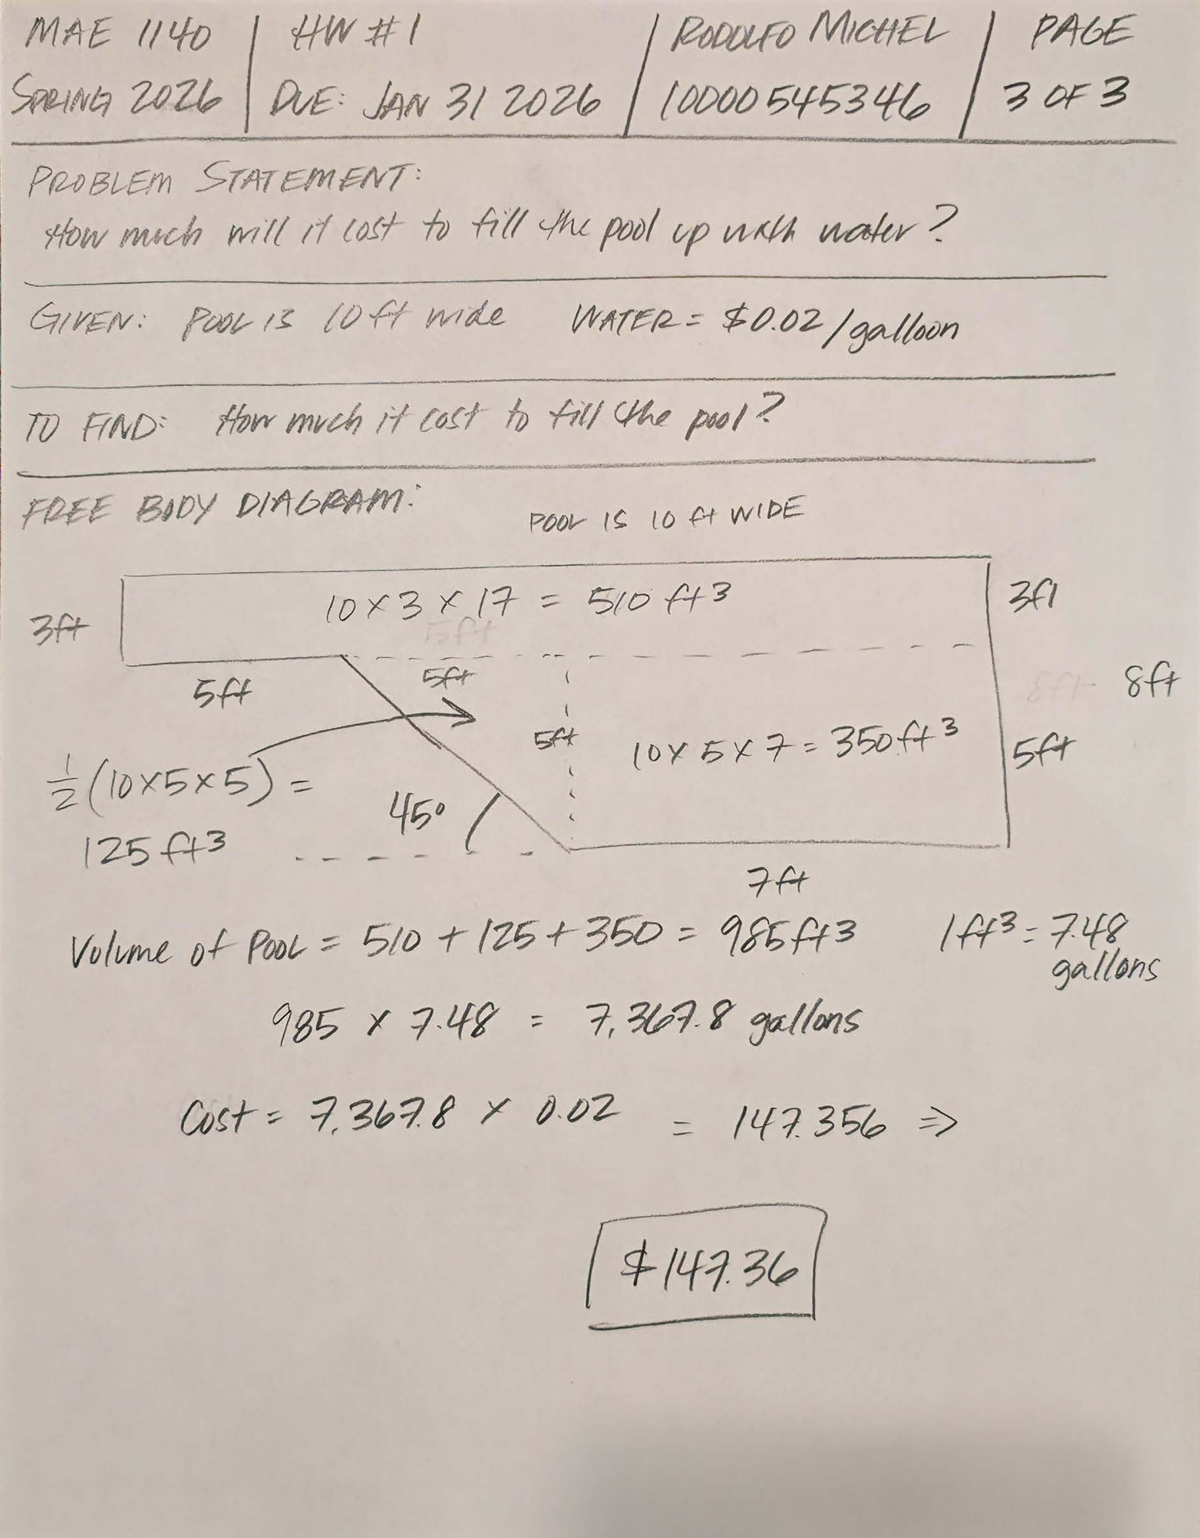 MAE 1140 | HW #1 | RODOLFO MICHEL | PAGE
SPRING 2026 | DUE: JAN 31 2026 | 10000545346 | 3 OF 3
PROBLEM STATEMENT:
How much will it cost to fill the pool up with water?
GIVEN: POOL IS 10 ft wide WATER = $0.02/galloon
TO FIND: How much it cost to fill the pool?
FREE BODY DIAGRAM:
POOL IS 10 ft WIDE
10 x 3 x 17 = 510 ft3
3ft
3ft
5ft
5ft
8ft
5ft
10 x 5 x 7 = 350 ft3
5ft
1/2 (10x5x5) =
125 ft3
45°
7ft
Volume of POOL = 510 + 125 + 350 = 985 ft3 1 ft3 = 7.48
gallons
985 x 7.48 = 7,367.8 gallons
Cost = 7,367.8 x 0.02 = 147.356 ⇒
$147.36